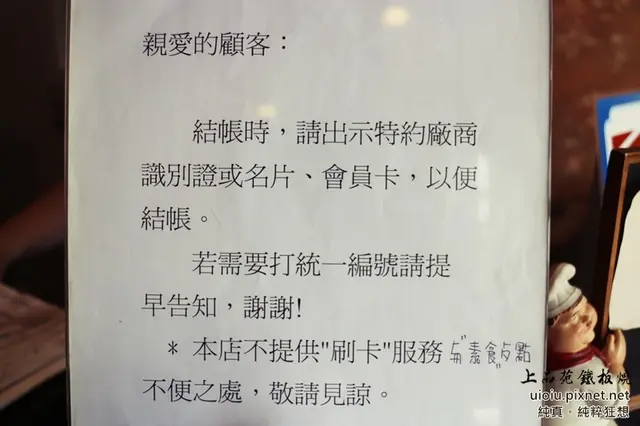 親愛的顧客：
結帳時，請出示特約廠商
識別證或名片、會員卡，以便
結帳。
若需要打統一編號請提
早告知，謝謝!
* 本店不提供"刷卡"服務與"素食點"
不便之處，敬請見諒。
上品苑鐵板燒
uioiu.pixnet.net
純真．純粹狂想